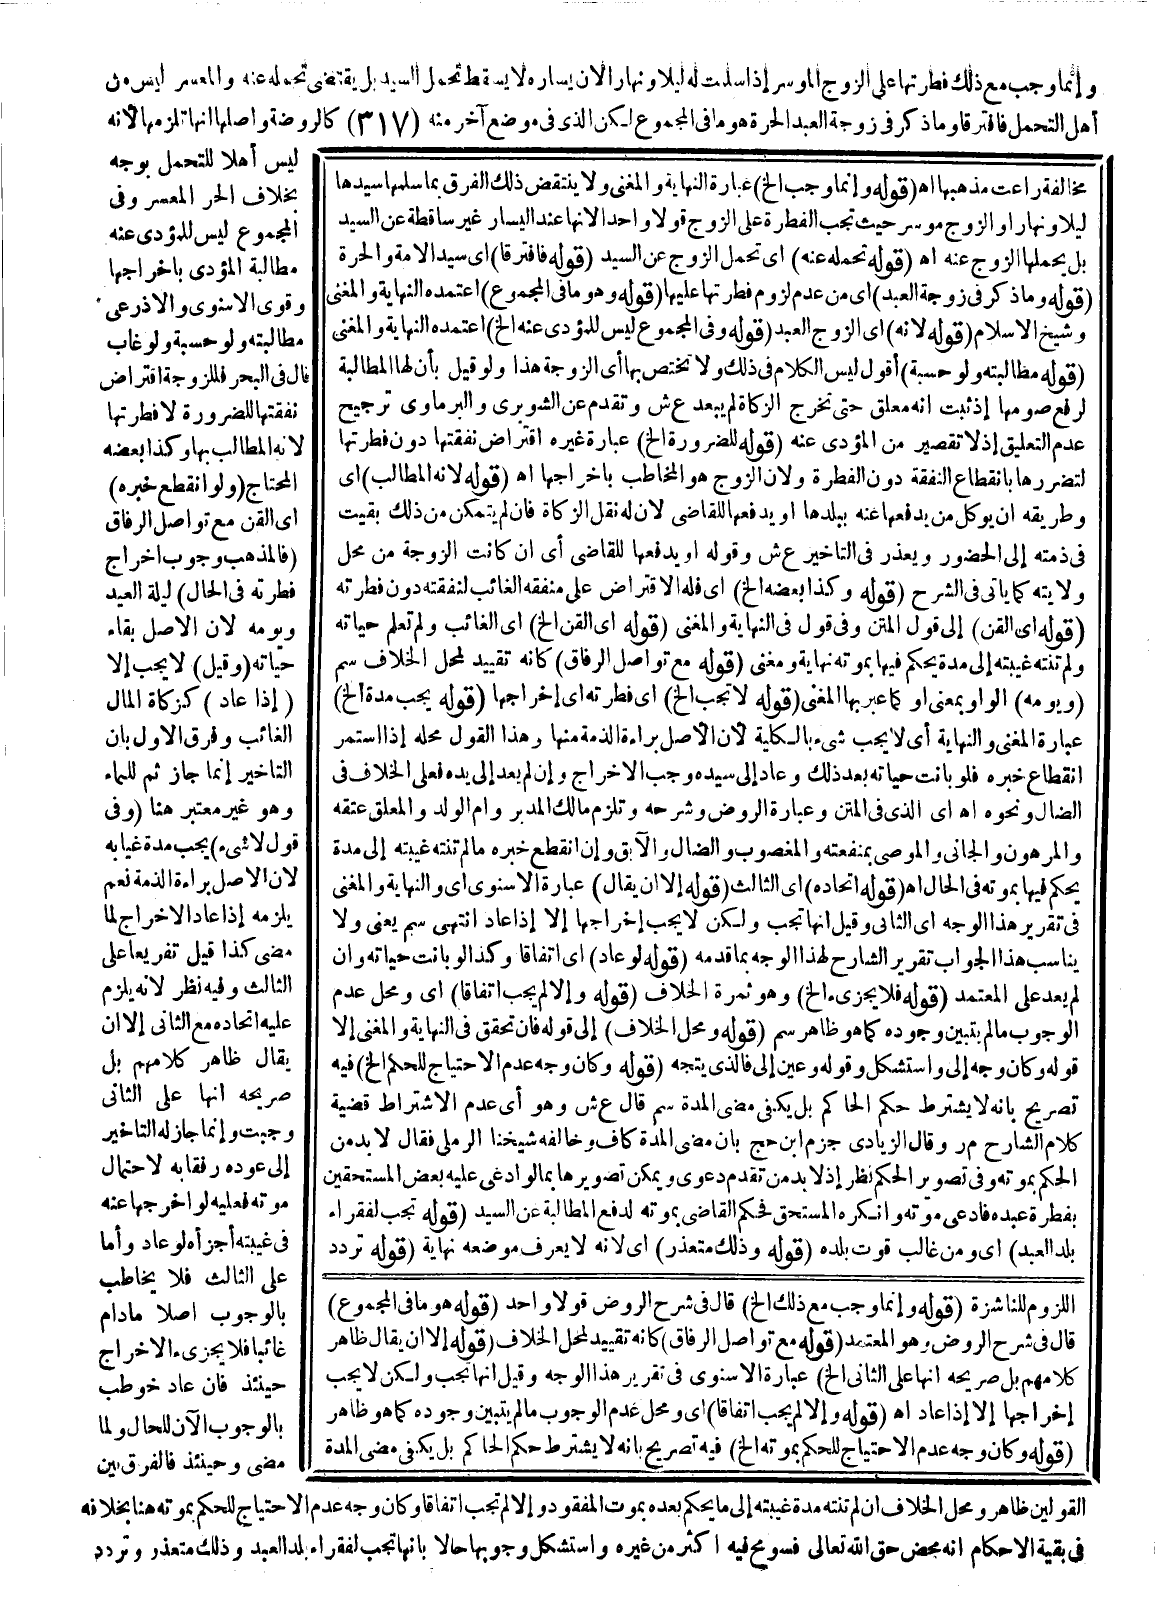 وإنما وجب مع ذلك فطرتها على الزوج الموسر إذا سلمت له ليلا ونهارا لان يساره لا يسقط تحمل السيد بل يقتضى تحمله عنه والمعسر ليس من
أهل التحمل فافترقا وما ذكر فى زوجة العبد الحرة هو ما فى المجموع لكن الذى فى موضع آخر منه (٣١٧) كالروضة واصلها انها تلزمها لأنه
ليس أهلا للتحمل بوجه
بخلاف الحر المعسر وفى
المجموع ليس للمؤدى عنه
مطالبة المؤدى باخراجها
وقوى الاسنوى والاذرعى
مطالبته ولو حسبة ولو غاب
قال فى البحر فللزوجة اقتراض
نفقتها للضرورة لا فطرتها
لانه المطالب بها وكذا بعضه
المحتاج (ولو انقطع خبره)
اى القن مع تواصل الرفاق
(فالمذهب وجوب اخراج
فطرته فى الحال) ليلة العيد
ويومه لان الاصل بقاء
حياته (وقيل) لا يجب إلا
(إذا عاد) كزكاة المال
الغائب وفرق الاول بان
التاخير إنما جاز ثم للنماء
وهو غير معتبر هنا (وفى
قول لا شىء) يجب مدة غيابه
لان الاصل براءة الذمة نعم
يلزمه إذا عاد الاخراج لما
مضى كذا قيل تفريعا على
الثالث وفيه نظر لانه يلزم
عليه اتحاده مع الثانى إلا ان
يقال ظاهر كلامهم بل
صريحه انها على الثانى
وجبت وإنما جاز له التاخير
إلى عوده رفقا به لاحتمال
موته فعليه لو اخرجها عنه
فى غيبته أجزأه لو عاد وأما
على الثالث فلا يخاطب
بالوجوب اصلا مادام
غائبا فلا يجزىء الاخراج
حينئذ فان عاد خوطب
بالوجوب الآن للحال ولما
مضى وحينئذ فالفرق بين
القولين ظاهر ومحل الخلاف ان لم تنته مدة غيبته إلى ما يحكم بعده بموت المفقود وإلا لم تجب اتفاقا وكان وجه عدم الاحتياج للحكم بموته هنا بخلافه
فى بقية الاحكام انه محض حق الله تعالى فسومح فيه اكثر من غيره واستشكل وجوبها حالا بانها تجب لفقراء بلد العبد وذلك متعذر وتردد
مخالفة راعت مذهبها اه (قوله وإنما وجب الخ) عبارة النهاية والمغنى ولا ينتقض ذلك الفرق بما سلمها سيدها
ليلا ونهارا والزوج موسر حيث تجب الفطرة على الزوج قولا واحدا لانها عند اليسار غير ساقطة عن السيد
بل يحملها الزوج عنه اه (قوله تحمله عنه) اى تحمل الزوج عن السيد (قوله فافترقا) اى سيد الامة والحرة
(قوله وما ذكر فى زوجة العبد) اى من عدم لزوم فطرتها عليها (قوله وهو ما فى المجموع) اعتمده النهاية والمغنى
وشيخ الاسلام (قوله لانه) اى الزوج العبد (قوله وفى المجموع ليس للمؤدى عنه الخ) اعتمده النهاية والمغنى
(قوله مطالبته ولو حسبة) أقول ليس الكلام فى ذلك ولا تختص بها أى الزوجة هذا ولو قيل بأن لها المطالبة
لرفع صومها إذ ثبت انه معلق حتى تخرج الزكاة لم يبعد ع ش وتقدم عن الشوبرى والبرماوى ترجيح
عدم التعليق إذ لا تقصير من المؤدى عنه (قوله للضرورة الخ) عبارة غيره اقتراض نفقتها دون فطرتها
لتضررها بانقطاع النفقة دون الفطرة ولان الزوج هو المخاطب باخراجها اه (قوله لانه المطالب) اى
وطريقه ان يوكل من يدفعها عنه ببلدها او يدفعها للقاضى لان له نقل الزكاة فان لم يتمكن من ذلك بقيت
فى ذمته إلى الحضور ويعذر فى التاخير ع ش وقوله او يدفعها للقاضى أى ان كانت الزوجة من محل
ولايته كما ياتى فى الشرح (قوله وكذا بعضه الخ) اى فله الاقتراض على منفقه الغائب لنفقته دون فطرته
(قوله اى القن) إلى قول المتن وفى قول فى النهاية والمغنى (قوله اى القن الخ) اى الغائب ولم تعلم حياته
ولم تنته غيبته إلى مدة يحكم فيها بموته نهاية ومغنى (قوله مع تواصل الرفاق) كانه تقييد لمحل الخلاف سم
(ويومه) الواو بمعنى او كما عبر بها المغنى (قوله لا تجب الخ) اى فطرته اى إخراجها (قوله يجب مدة الخ)
عبارة المغنى والنهاية أى لا يجب شىء بالكلية لأن الأصل براءة الذمة منها وهذا القول محله إذا استمر
انقطاع خبره فلو بانت حياته بعد ذلك وعاد إلى سيده وجب الاخراج وإن لم يعد إلى يده فعلى الخلاف فى
الضال ونحوه اه اى الذى فى المتن وعبارة الروض وشرحه وتلزم مالك المدبر وام الولد والمعلق عتقه
والمرهون والجانى والموصى بمنفعته والمغصوب والضال والآبق وإن انقطع خبره مالم تنته غيبته إلى مدة
يحكم فيها بموته فى الحال اه (قوله اتحاده) اى الثالث (قوله إلا ان يقال) عبارة الاسنوى اى والنهاية والمغنى
فى تقرير هذا الوجه اى الثانى وقيل انها تجب ولكن لا يجب إخراجها إلا إذا عاد انتهى سم يعنى ولا
يناسب هذا الجواب تقرير الشارح لهذا الوجه بما قدمه (قوله لو عاد) اى اتفاقا وكذا لو بانت حياته وان
لم يعد على المعتمد (قوله فلا يجزىء الخ) وهو ثمرة الخلاف (قوله وإلا لم يجب اتفاقا) اى ومحل عدم
الوجوب مالم يتبين وجوده كما هو ظاهر سم (قوله ومحل الخلاف) إلى قوله فان تحقق فى النهاية والمغنى إلا
قوله وكان وجه إلى واستشكل وقوله وعين إلى فالذى يتجه (قوله وكان وجه عدم الاحتياج للحكم الخ) فيه
تصريح بانه لا يشترط حكم الحاكم بل يكفى مضى المدة سم قال ع ش وهو أى عدم الاشتراط قضية
كلام الشارح م ر وقال الزيادى جزم ابن حج بان مضى المدة كاف وخالفه شيخنا الرملى فقال لا بد من
الحكم بموته وفى تصوير الحكم نظر إذ لا بد من تقدم دعوى ويمكن تصويرها بما لو ادعى عليه بعض المستحقين
بفطرة عبده فادعى موته وانكره المستحق فحكم القاضى بموته لدفع المطالبة عن السيد (قوله تجب لفقراء
بلد العبد) اى ومن غالب قوت بلده (قوله وذلك متعذر) اى لانه لا يعرف موضعه نهاية (قوله تردد
اللزوم للناشزة (قوله وإنما وجب مع ذلك الخ) قال فى شرح الروض قولا واحد (قوله هو ما فى المجموع)
قال فى شرح الروض وهو المعتمد (قوله مع تواصل الرفاق) كانه تقييد لمحل الخلاف (قوله إلا ان يقال ظاهر
كلامهم بل صريحه انها على الثانى الخ) عبارة الاسنوى فى تقرير هذا الوجه وقيل انها تجب ولكن لا يجب
إخراجها إلا إذا عاد اه (قوله وإلا لم يجب اتفاقا) اى ومحل عدم الوجوب مالم يتبين وجوده كما هو ظاهر
(قوله وكان وجه عدم الاحتياج للحكم بموته الخ) فيه تصريح بانه لا يشترط حكم الحاكم بل يكفى مضى المدة